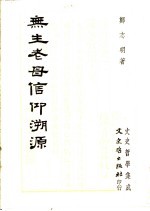 鄭志明著
無生老母信仰溯源
文史哲學集成
文史哲出版社印行